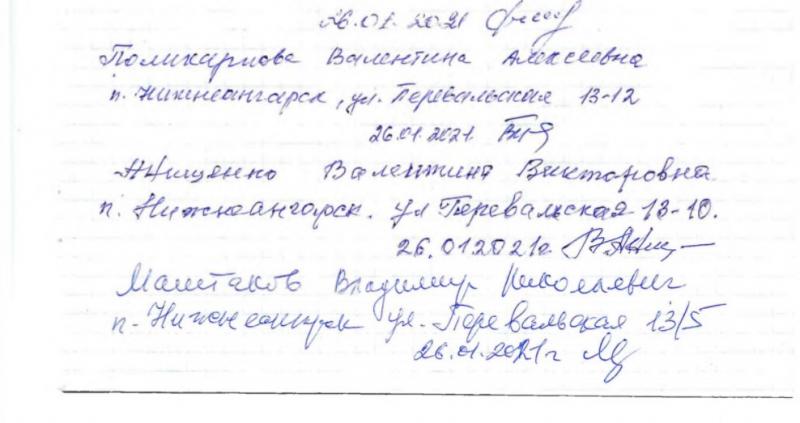 26.01.2021
Поликарпова Валентина Алексеевна
п. Нижнеангарск, ул. Перевальская 13-12
26.01.2021
Валентина Викторовна
п. Нижнеангарск. ул Перевальская 13-10.
26.012021г.
Маштаков Владимир Николаевич
п. Нижнеангарск ул. Перевальская 13/5
26.01.2021г